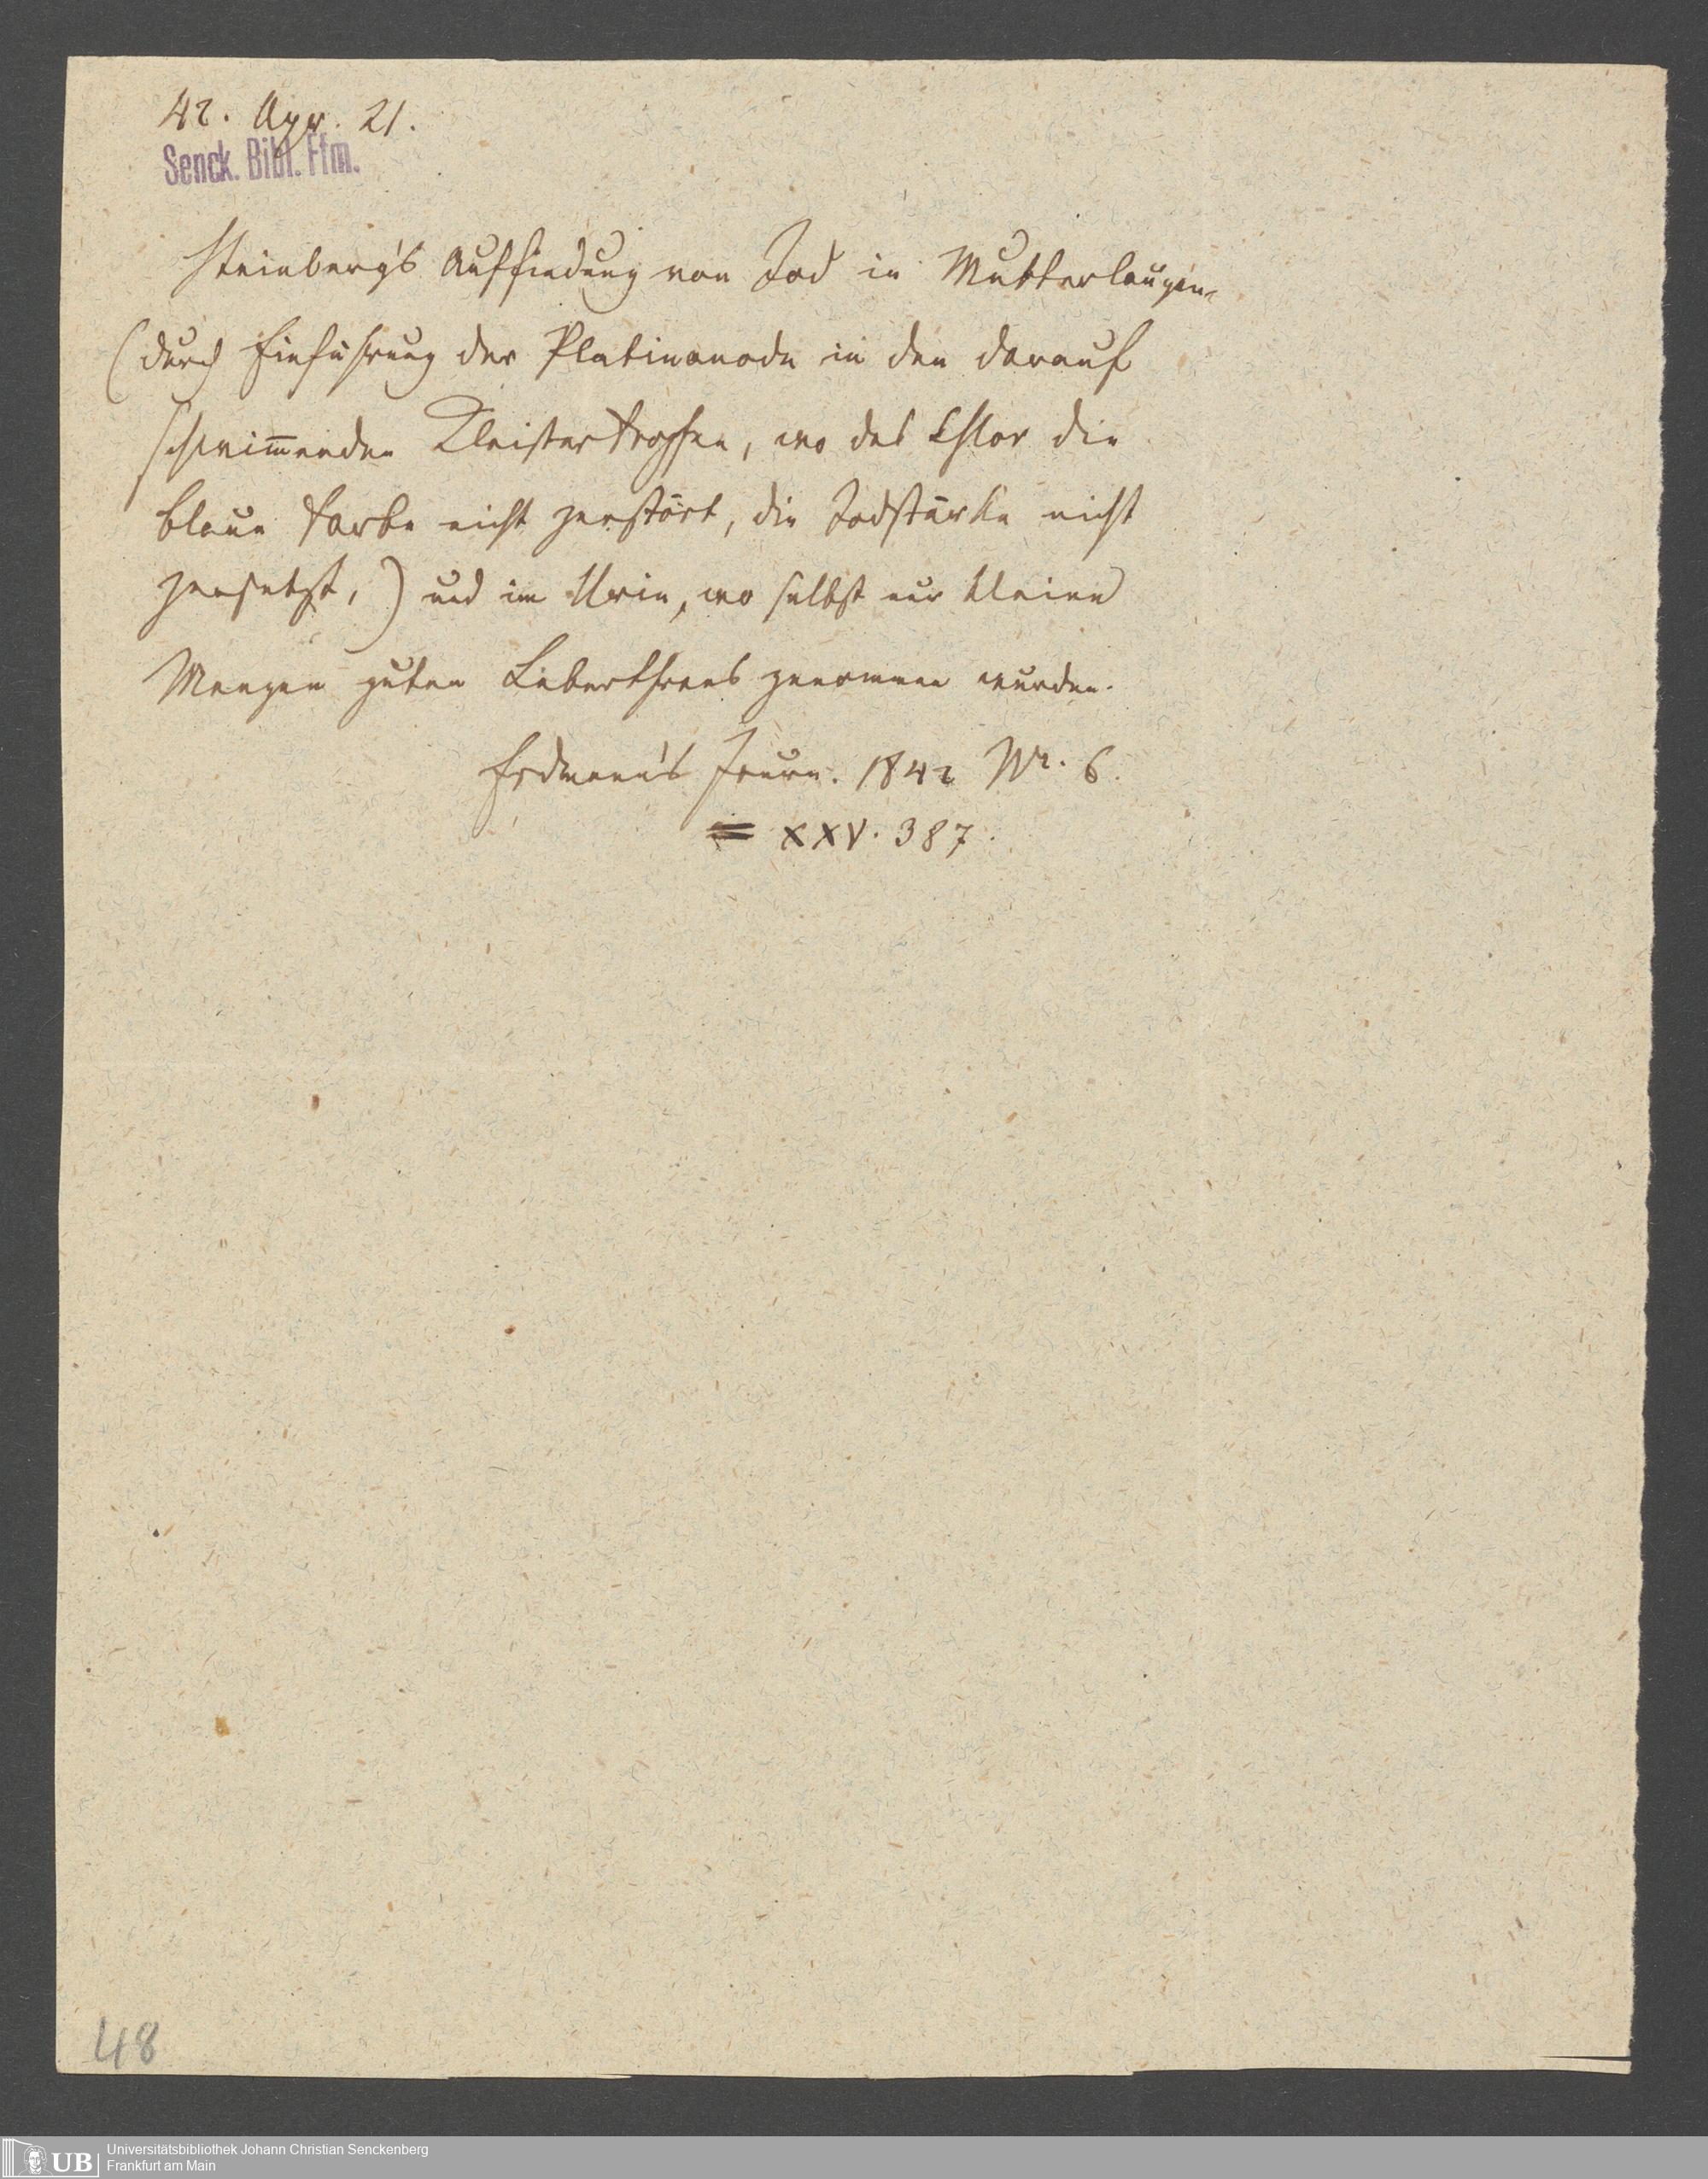 42. Apr. 21.
Senck. Bibl. Ffm.
Steinberg's Auffindung von Jod in Mutterlaugen
(durch Einführung der Platinanode in den darauf
schwim̅enden Kleistertropfen, wo das Chlor die
blaue Farbe nicht zerstört, die Jodstärke nicht
zersetzt,) und im Urin, wo selbst nur kleine
Mengen guten Leberthrans genommen wurden.
Erdmann's Journ. 1842 Nr. 6.
= XXV. 387.
48
UB Universitätsbibliothek Johann Christian Senckenberg
Frankfurt am Main